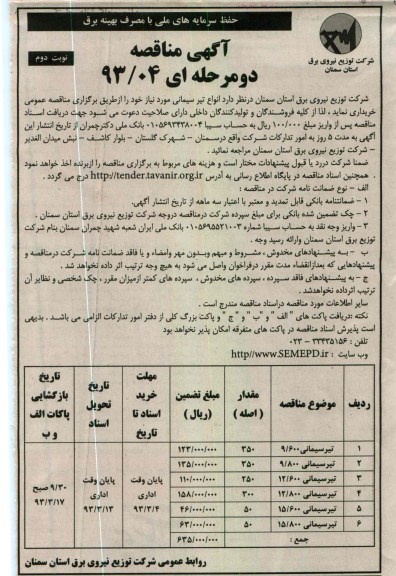 حفظ سرمایه های ملی با مصرف بهینه برق
نوبت دوم
آگهی مناقصه
دومرحله ای ۹۳/۰۴
شرکت توزیع نیروی برق
استان سمنان
شرکت توزیع نیروی برق استان سمنان درنظر دارد انواع تیر سیمانی مورد نیاز خود را ازطریق برگزاری مناقصه عمومی
خریداری نماید ، لذا از کلیه فروشندگان و تولیدکنندگان داخلی دارای صلاحیت دعوت می شود جهت دریافت اسناد
مناقصه پس از واریز مبلغ ۱۰۰/۰۰۰ ریال به حساب سیبا ۰۱۰۵۶۹۳۴۳۸۰۰۴ بانک ملی دکترچمران از تاریخ انتشار این
آگهی به مدت ۵ روز به امور تدارکات شرکت واقع درسمنان – شهرک گلستان – بلوار کاشف – نبش میدان الغدیر
– شرکت توزیع نیروی برق استان سمنان مراجعه نمائید .
ضمنا شرکت دررد یا قبول پیشنهادات مختار است و هزینه های مربوط به برگزاری مناقصه را ازبرنده اخذ خواهد نمود
. همچنین اسناد مناقصه در پایگاه اطلاع رسانی به آدرس http://tender.tavanir.org.ir درج می گردد .
الف – نوع ضمانت نامه شرکت در مناقصه :
۱ – ضمانتنامه بانکی قابل تمدید و معتبر با اعتبار سه ماهه از تاریخ انتشار آگهی.
۲ – چک تضمین شده بانکی برای مبلغ سپرده شرکت درمناقصه دروجه شرکت توزیع نیروی برق استان سمنان .
۳ – واریز وجه نقد به حساب سیبا شماره ۰۱۰۵۶۹۵۵۲۱۰۰۳ بانک ملی ایران شعبه شهید چمران سمنان بنام شرکت
توزیع برق استان سمنان وارائه رسید وجه .
ب – به پیشنهادهای مخدوش ، مشروط و مبهم وبدون مهر وامضاء و یا فاقد ضمانت نامه شرکت درمناقصه و
پیشنهادهایی که بعدازانقضاء مدت مقرر درفراخوان واصل می شود به هیچ وجه ترتیب اثر داده نخواهد شد .
ج – به پیشنهادهای فاقد سپرده ، سپرده های مخدوش ، سپرده های کمتر ازمیزان مقرر ، چک شخصی و نظایر آن
ترتیب اثرداده نخواهدشد .
سایر اطلاعات مورد مناقصه دراسناد مناقصه مندرج است .
نکته :دریافت پاکت های " الف " و " ب " و " ج " و پاکت بزرگ کلی از دفتر امور تدارکات الزامی می باشد . بدیهی
است پذیرش اسناد مناقصه در پاکت های متفرقه امکان پذیر نخواهد بود
تلفن : ۳۳۴۳۵۱۵۶ – ۰۲۳
وب سایت : http//www.SEMEPD.ir
ردیف موضوع مناقصه مقدار ( اصله ) مبلغ تضمین (ریال ) مهلت خرید اسناد تا تاریخ تاریخ تحویل اسناد تاریخ بازگشایی پاکات الف و ب
۱ تیرسیمانی ۹/۶۰۰ ۳۵۰ ۱۲۳/۰۰۰/۰۰۰
۲ تیرسیمانی ۹/۸۰۰ ۳۵۰ ۱۳۵/۰۰۰/۰۰۰
۳ تیرسیمانی ۱۲/۶۰۰ ۲۵۰ ۱۱۰/۰۰۰/۰۰۰ پایان وقت اداری ۹۳/۳/۴ پایان وقت اداری ۹۳/۳/۱۳ ۹/۳۰ صبح ۹۳/۳/۱۷
۴ تیرسیمانی ۱۲/۸۰۰ ۳۰۰ ۱۵۸/۰۰۰/۰۰۰
۵ تیرسیمانی ۱۵/۶۰۰ ۵۰ ۴۶/۰۰۰/۰۰۰
۶ تیرسیمانی ۱۵/۸۰۰ ۵۰ ۶۳/۰۰۰/۰۰۰
جمع : ۶۳۵/۰۰۰/۰۰۰
روابط عمومی شرکت توزیع نیروی برق استان سمنان